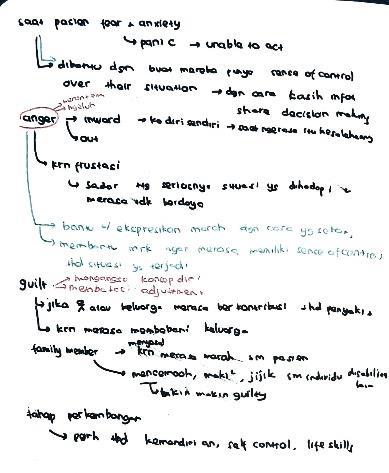 saat pasien fear & anxiety
↳ panic → unable to act
↳ dibantu dgn buat mereka punya sense of control
over their situation → dgn cara kasih info,
share decision making
mengeluh
anger → inward → ke diri sendiri → saat ngerasa itu kesalahannya
↳ out
↳ krn frustasi
↳ sadar ttg seriusnya situasi yg dihadapi &
merasa tdk berdaya
→ bantu u/ ekspresikan marah dgn cara yg
→ membantu mrk agar merasa memiliki sense of control
thd situasi yg terjadi
guilt → mengganggu konsep diri
→ membatasi adjustment
↳ jika atau keluarga merasa berkontribusi thd penyakit
↳ krn merasa membebani keluarga
menjadi
family member → krn merasa marah sm pasien
→ mencemooh, maki², jijik sm individu disabilitas
↳ bikin makin guilty
tahap perkembangan
↳ pgrh thd kemandirian, self control, life skills